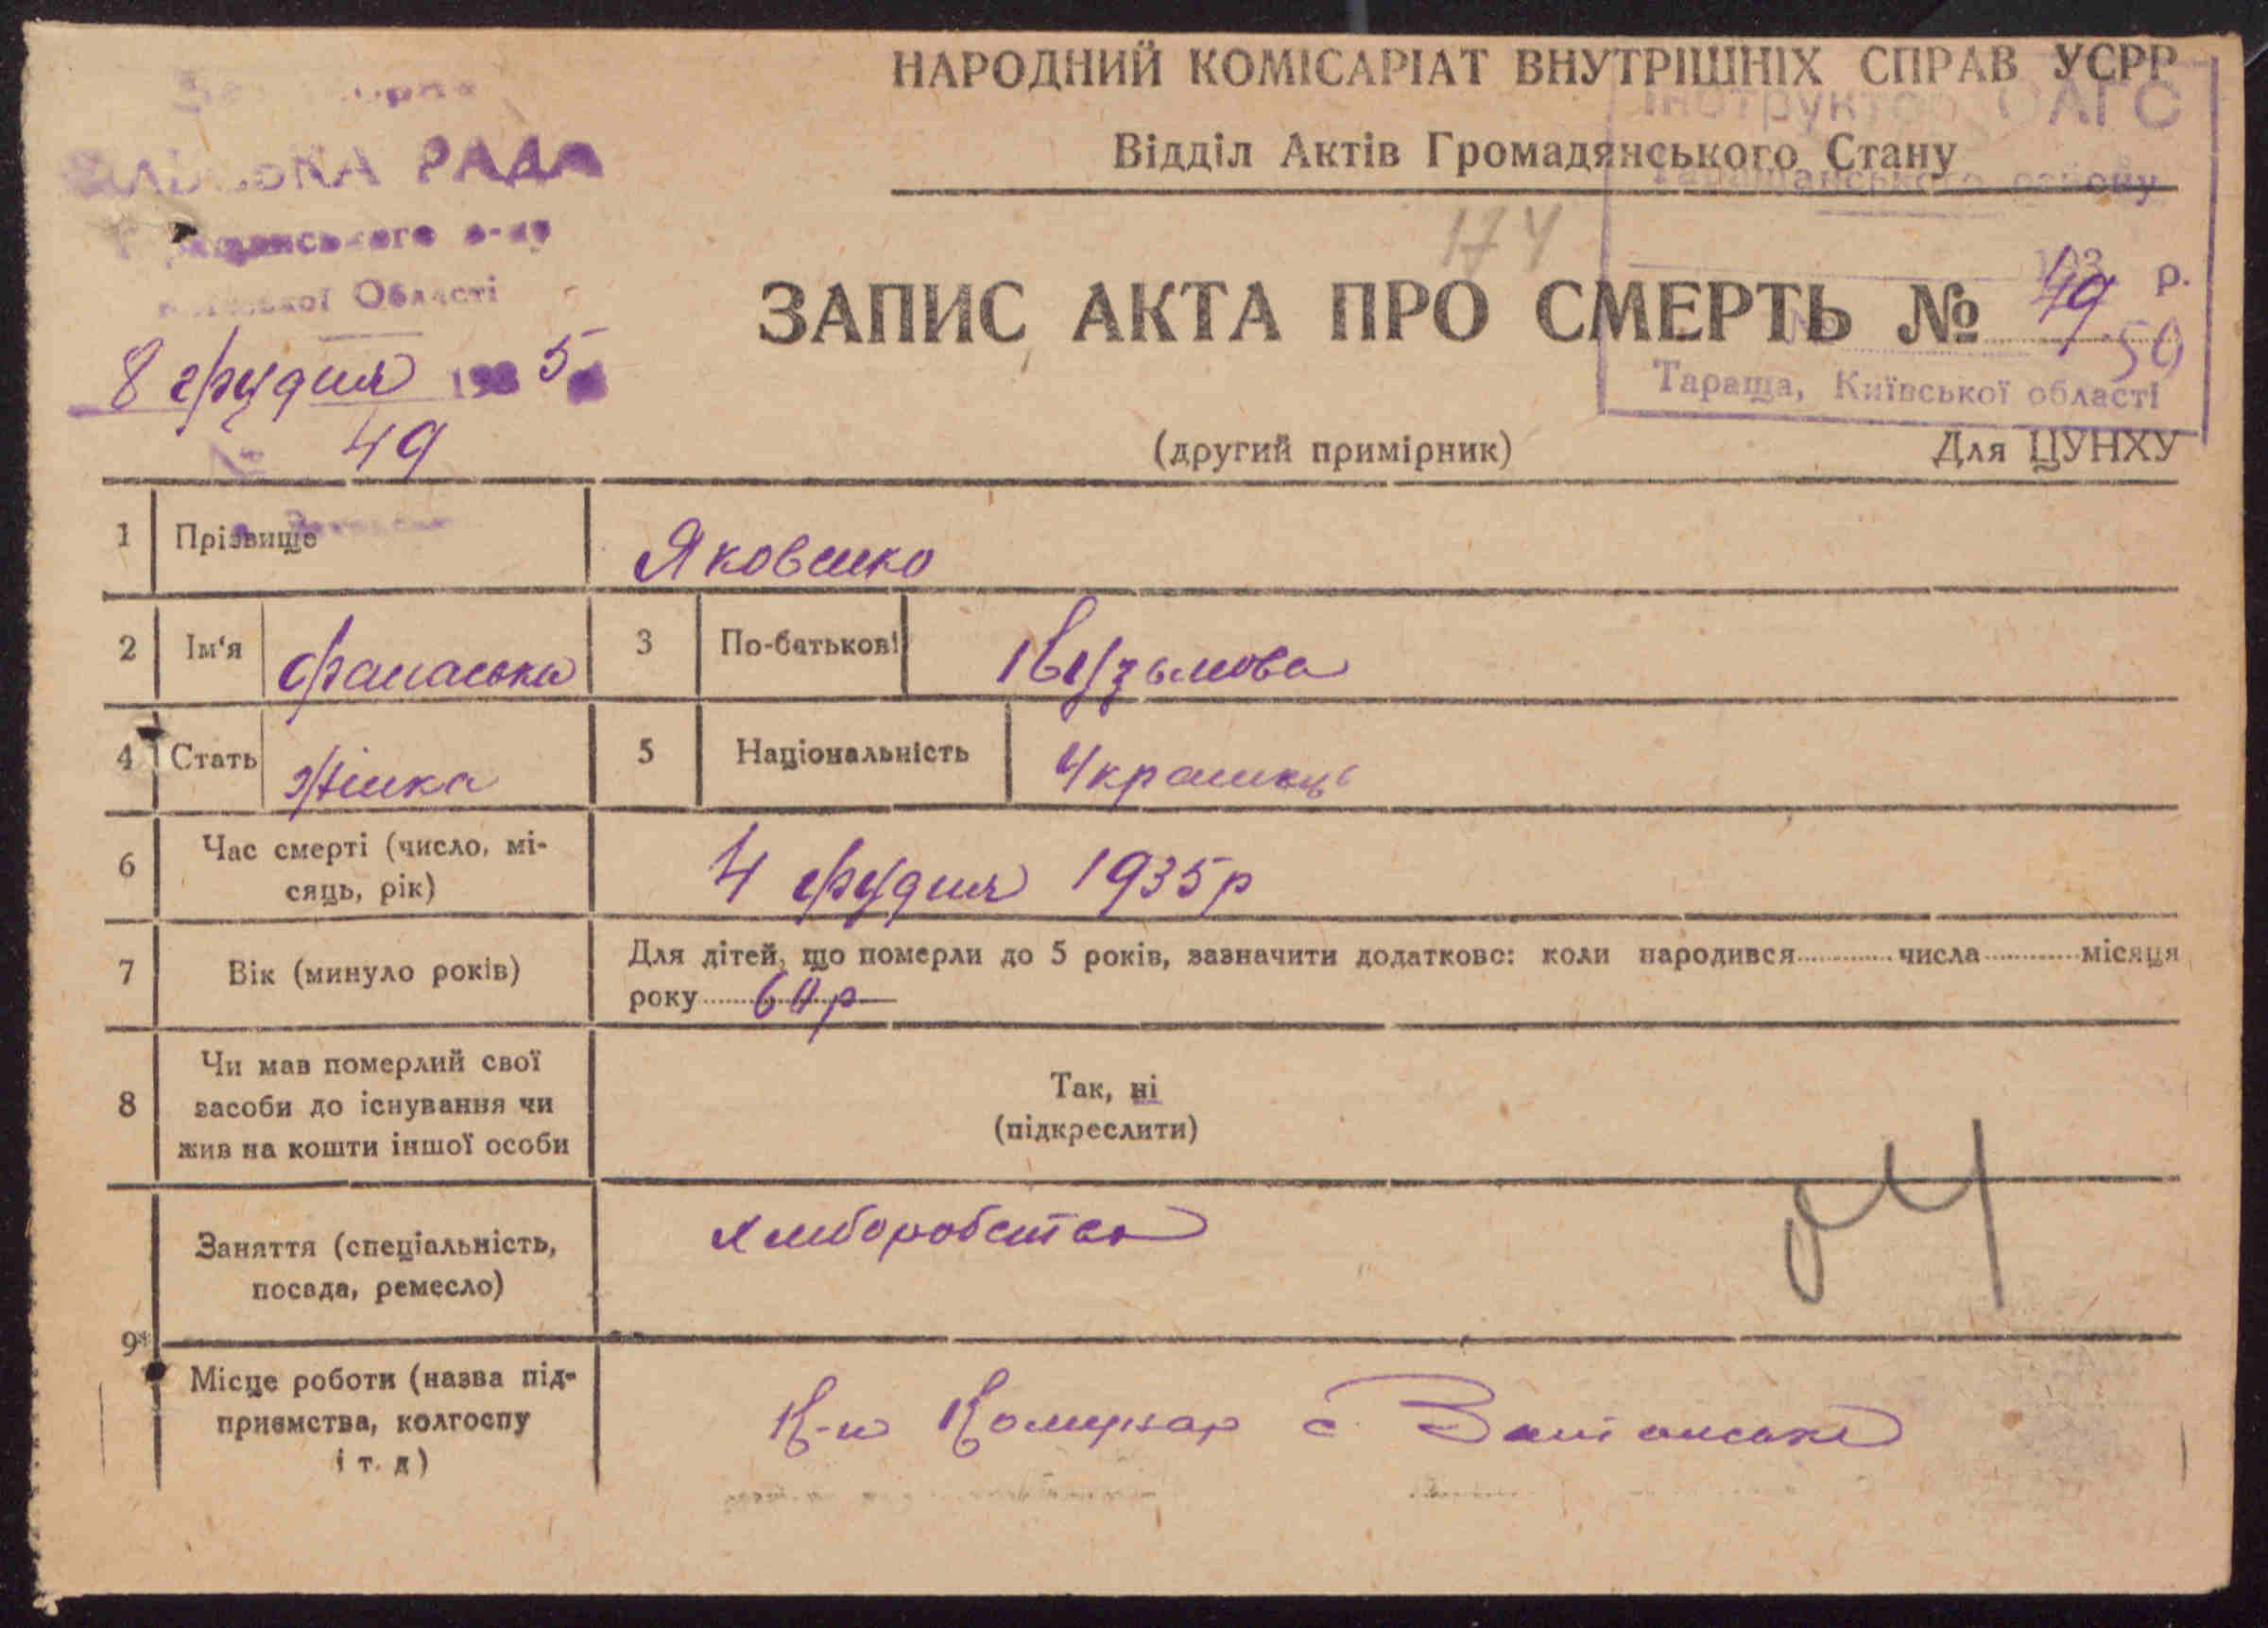 НАРОДНИЙ КОМІСАРІАТ ВНУТРІШНІХ СПРАВ УСРР
Відділ Актів Громадянського Стану
РАДА
Області
8 грудня 1935
№ 49
Інструктор ОАГС
Таращанського району
193 р.
50
Тараща, Київської області
174
ЗАПИС АКТА ПРО СМЕРТЬ № 49
(другий примірник)
Для ЦУНХУ
1 Прізвище Яковенко
2 Ім'я Фанаська 3 По-батькові Кузьмова
4 Стать жінка 5 Національність
6 Час смерті (число, мі-
сяць, рік) 4 грудня 1935р
7 Вік (минуло років) Для дітей, що померли до 5 років, зазначити додатково: коли народився числа місяця
року 60р
8 Чи мав померлий свої
засоби до існування чи
жив на кошти іншої особи
Так, ні
(підкреслити)
9 Заняття (специальність,
посада, ремесло) хліборобство
Місце роботи (назва під-
приємства, колгоспу
і т. д)
Комунар с.